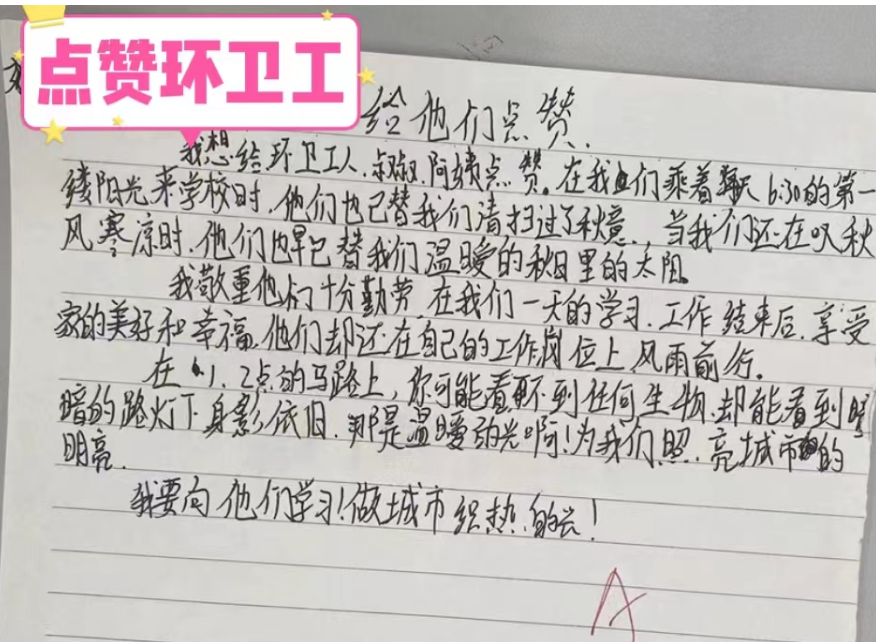 点赞环卫工
给他们点赞
我想给环卫工人,叔叔,阿姨点赞。在我们乘着每天6:30的第一
缕阳光来学校时,他们也已替我们清扫过了秋意,当我们还在叹秋
风寒凉时,他们也早已替我们温暖的秋日里的太阳。
我敬重他们十分勤劳,在我们一天的学习,工作结束后,享受
家的美好和幸福,他们却还在自己的工作岗位上,风雨前行。
在1,2点的马路上,你可能看不到任何生物,却能看到
暗的路灯下身影依旧,那是温暖的光啊!为我们照亮城市的
明亮.
我要向他们学习!做城市炽热的光!
A